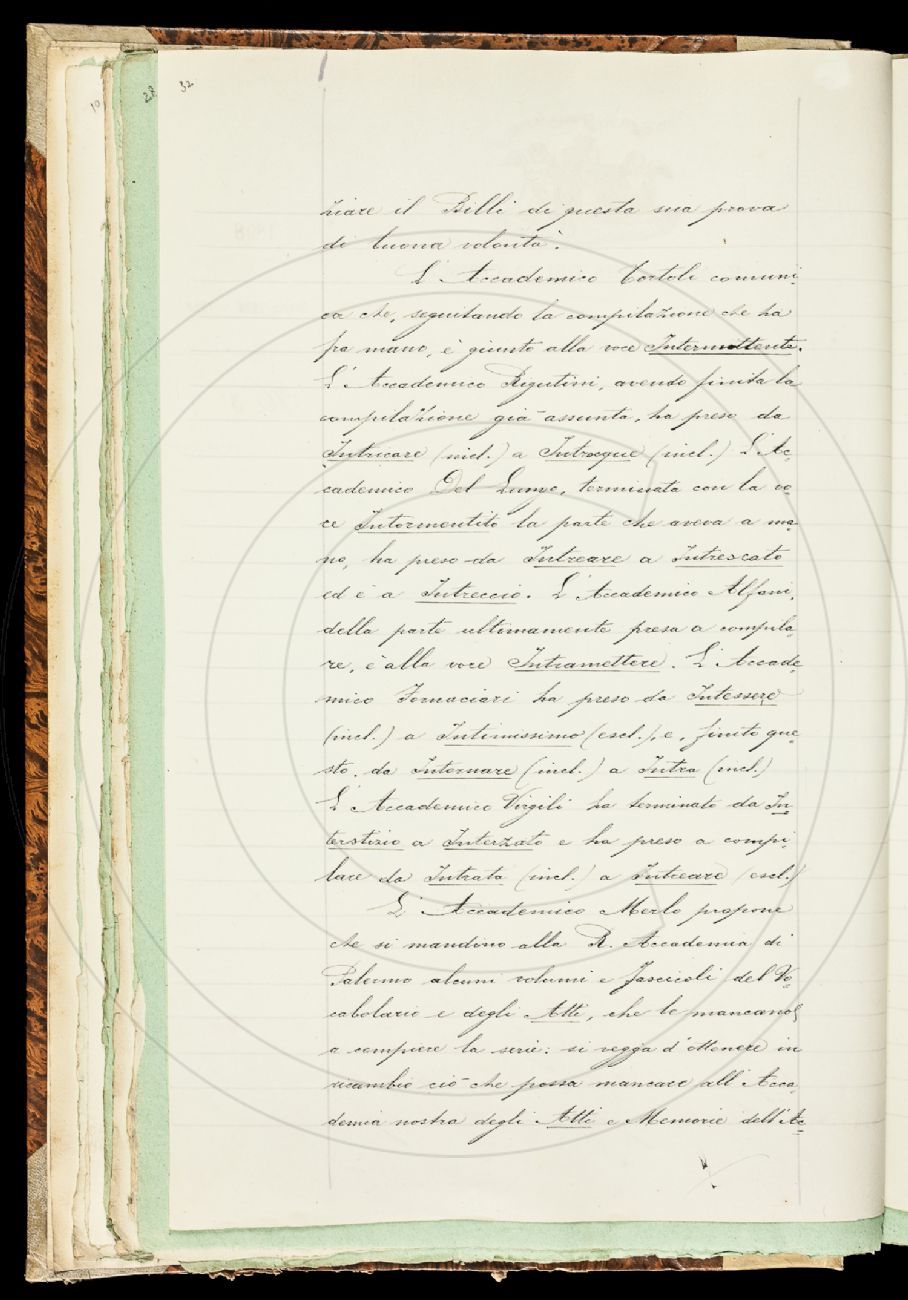 10
28
32
ziare il Billi di questa sua prova
di buona volontà.
L'Accademico Tortoli comuni-
ca che, seguitando la compilazione che ha
fra mano, è giunto alla voce Intermittente.
L'Accademico Rigutini, avendo finita la
compilazione già assunta, ha preso da
Intricare (incl.) a Introque (incl.) L'Ac-
cademico Del Lungo, terminata con la vo-
ce Intormentito la parte che aveva a ma-
no, ha preso da Intreare a Intrescato
ed è a Intreccio. L'Accademico Alfani,
della parte ultimamente presa a compila-
re, è alla voce Intramettere. L'Accade-
mico Fornaciari ha preso da Intessere
(incl.) a Intinissimo (escl.), e, finito que-
sto, da Intornare (incl.) a Intra (incl.)
L'Accademico Virgili ha terminato da In-
terstizio a Interzato e ha preso a compi-
lare da Intrata (incl.) a Intreare (escl.)
L'Accademico Merlo propone
che si mandino alla R. Accademia di
Palermo alcuni volumi e fascicoli del Vo-
cabolario e degli Atti, che le mancano
a compiere la serie: si vegga d'ottenere in
ricambio ciò che possa mancare all'Acca-
demia nostra degli Atti e Memorie dell'Ac-